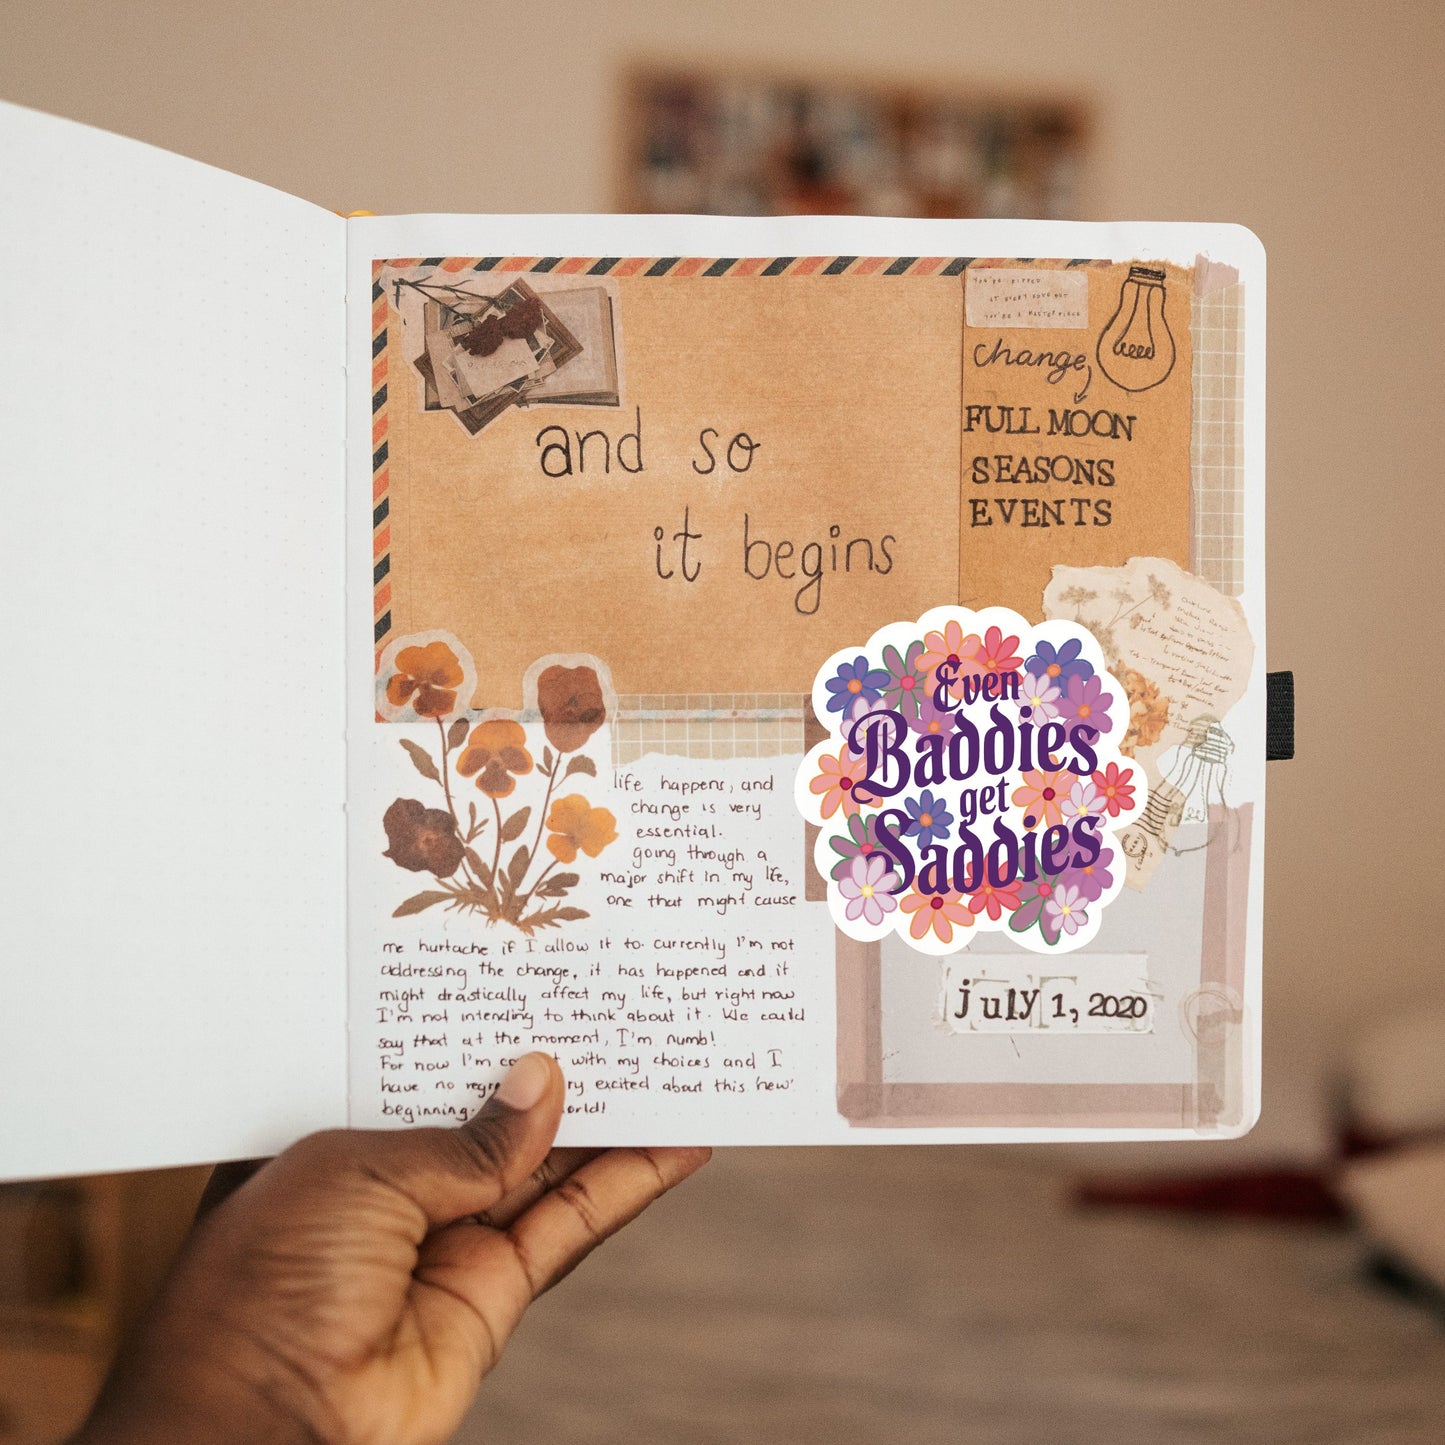 YOU'RE RIPPED
AT EVERY EDGE BUT
YOU'RE A MASTERPIECE
change
FULL MOON
SEASONS
EVENTS
and so
it begins
Even
Baddies
get
Saddies
life happens, and
change is very
essential.
going through a
major shift in my life,
one that might cause
me hurtache if I allow it to. Currently I'm not
addressing the change, it has happened and it
might drastically affect my life, but right now
I'm not intending to think about it. We could
say that at the moment, I'm numb!
For now I'm with my choices and I
have no excited about this 'new'
beginning.
july 1, 2020